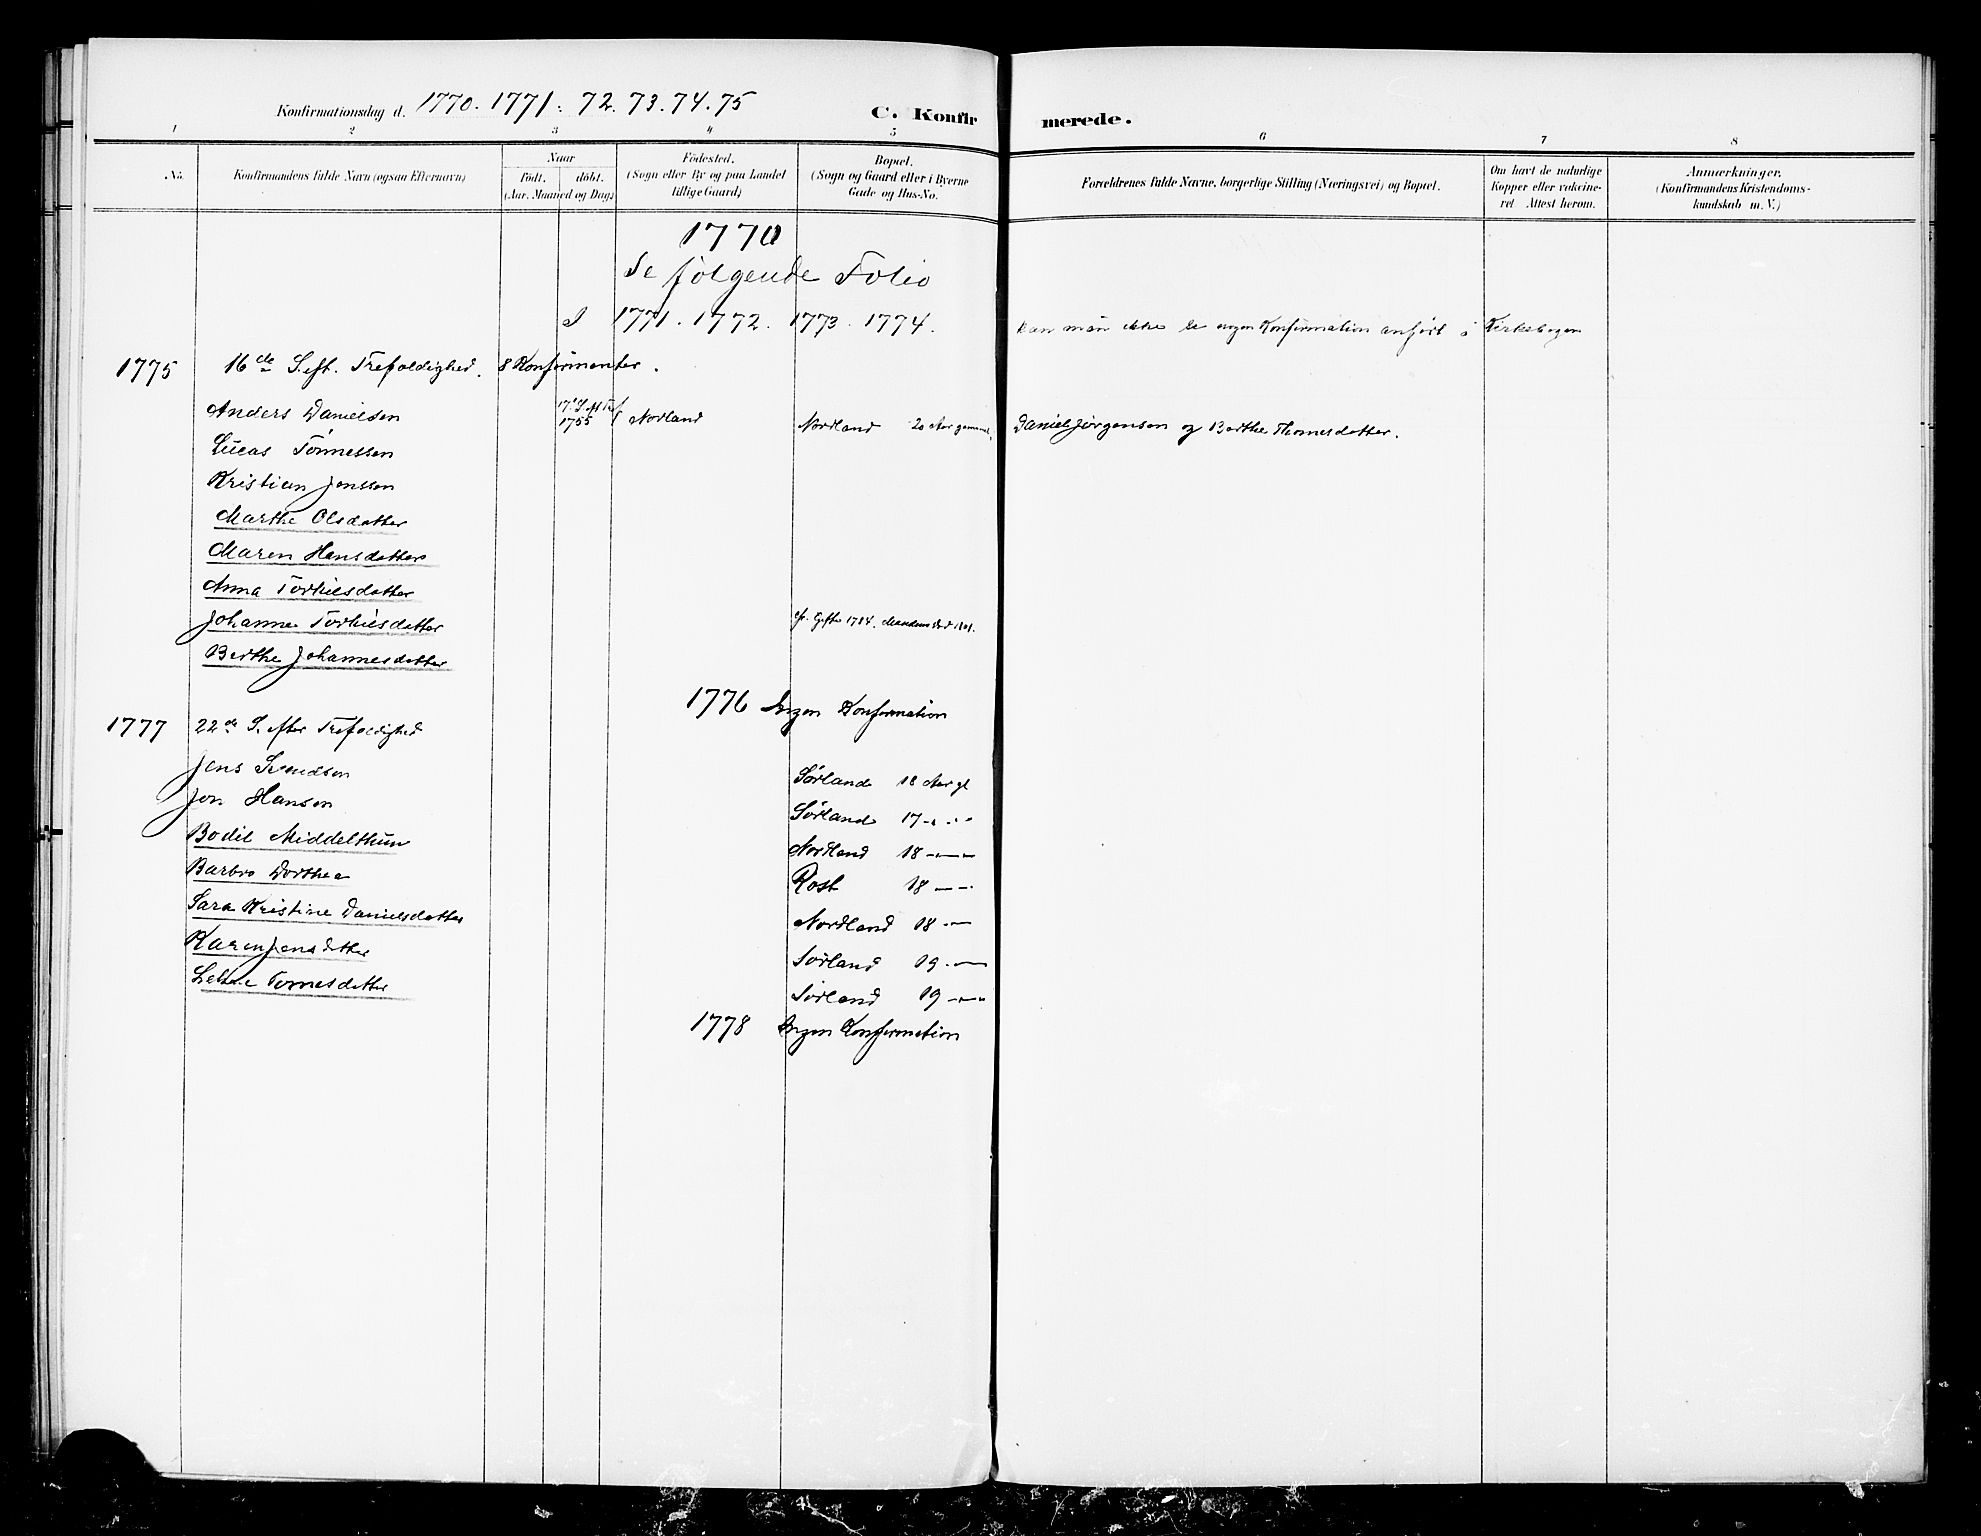 Konfirmationsdag d. 1770. 1771. 72. 73. 74. 75
C. Konfirmerede.
1 2 3 4 5 6 7 8
No.
Konfirmandens fulde Navn (ogsaa Efternavn)
Naar
født. døbt.
(Aar, Maaned og Dag)
Fødested.
(Sogn eller By og paa Landet
tillige Gaard)
Bopæl.
(Sogn og Gaard eller i Byerne
Gade og Hus-No.
Forældrenes fulde Navne, borgerlige Stilling (Næringsvei) og Bopæl.
Om havt de naturlige
Kopper eller vakcine-
ret Attest herom.
Anmærkninger.
(Konfirmandens Kristendoms-
kundskab m. V.)
1770
Se følgende Folio
I 1771. 1772. 1773. 1774. kan man ikke se nogen Konfirmation anført i Kirkebogen
1775 16de S. eft. Trefoldighed. 8 Konfirmanter.
Anders Danielsen 17. S. eft Tref 1755 Nordland Nordland 20 Aar gammel. Daniel Jørgensen og Berthe Thomesdatter.
Lucas Tönnessen
Kristian Jenssen
Marthe Olsdatter
Maren Hansdatter
Anna Torkilsdatter
Johanna Torkilsdatter cfr. Gift 1784. Manden død
Berthe Johannesdatter
1776 Ingen Konfirmation
1777 22de S. efter Trefoldighed
Jens Svendsen Sørland 18 Aar gl
Jon Hansen Sørland 17 - " -
Bodil Middelthun Nordland 18 - " -
Barbro Dorthea Rost 18 - -
Sara Kristine Danielsdatter Nordland 18 - -
Karen Jensdatter Sørland 19 - -
Tomesdatter Sørland 19 - " -
1778 Ingen Konfirmation